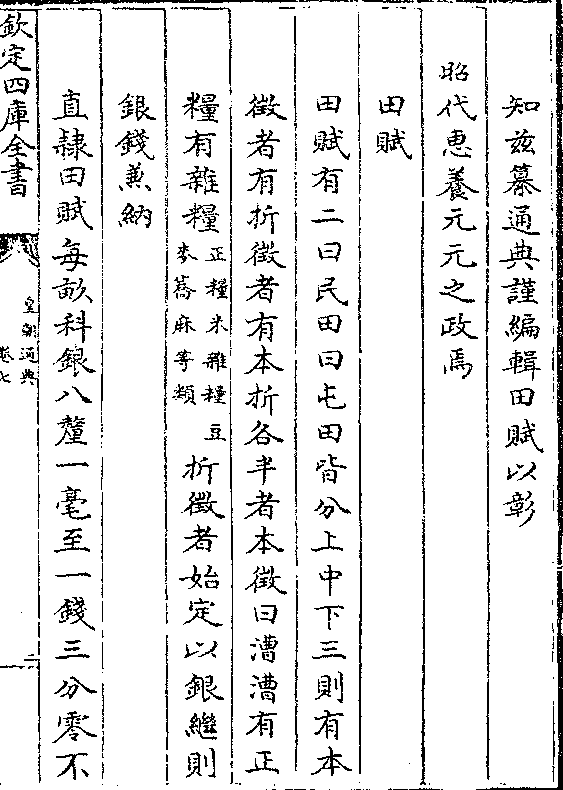 知兹纂通典謹編輯田賦以彰
昭代惠養元元之政焉
田賦
田賦有二曰民田曰屯田皆分上中下三則有本
徵者有折徵者有本折各半者本徵曰漕漕有正
糧有雜糧正糧米雜糧豆麥蕎麻等類折徵者始定以銀繼則
銀錢兼納
直隸田賦每畝科銀八釐一毫至一錢三分零不
欽定四庫全書
皇朝通典
卷七
二